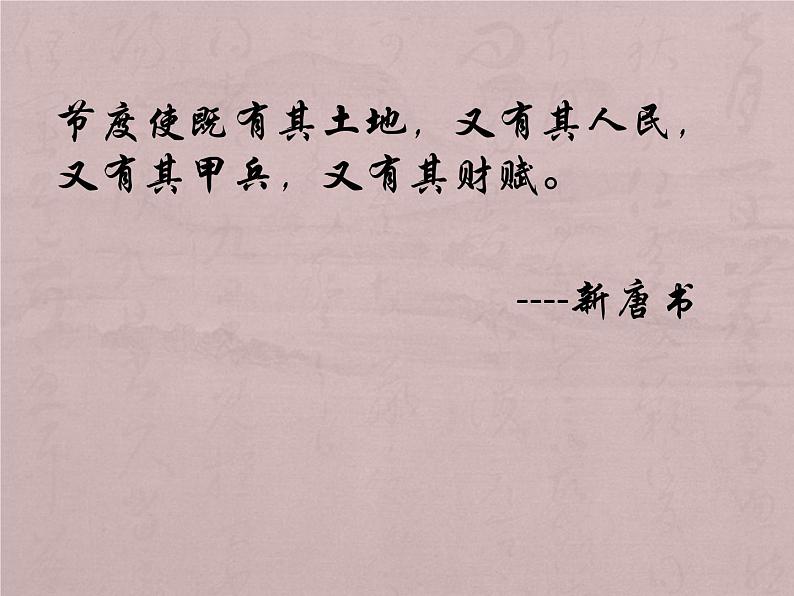 节度使既有其土地，又有其人民，
又有其甲兵，又有其财赋。
----新唐书